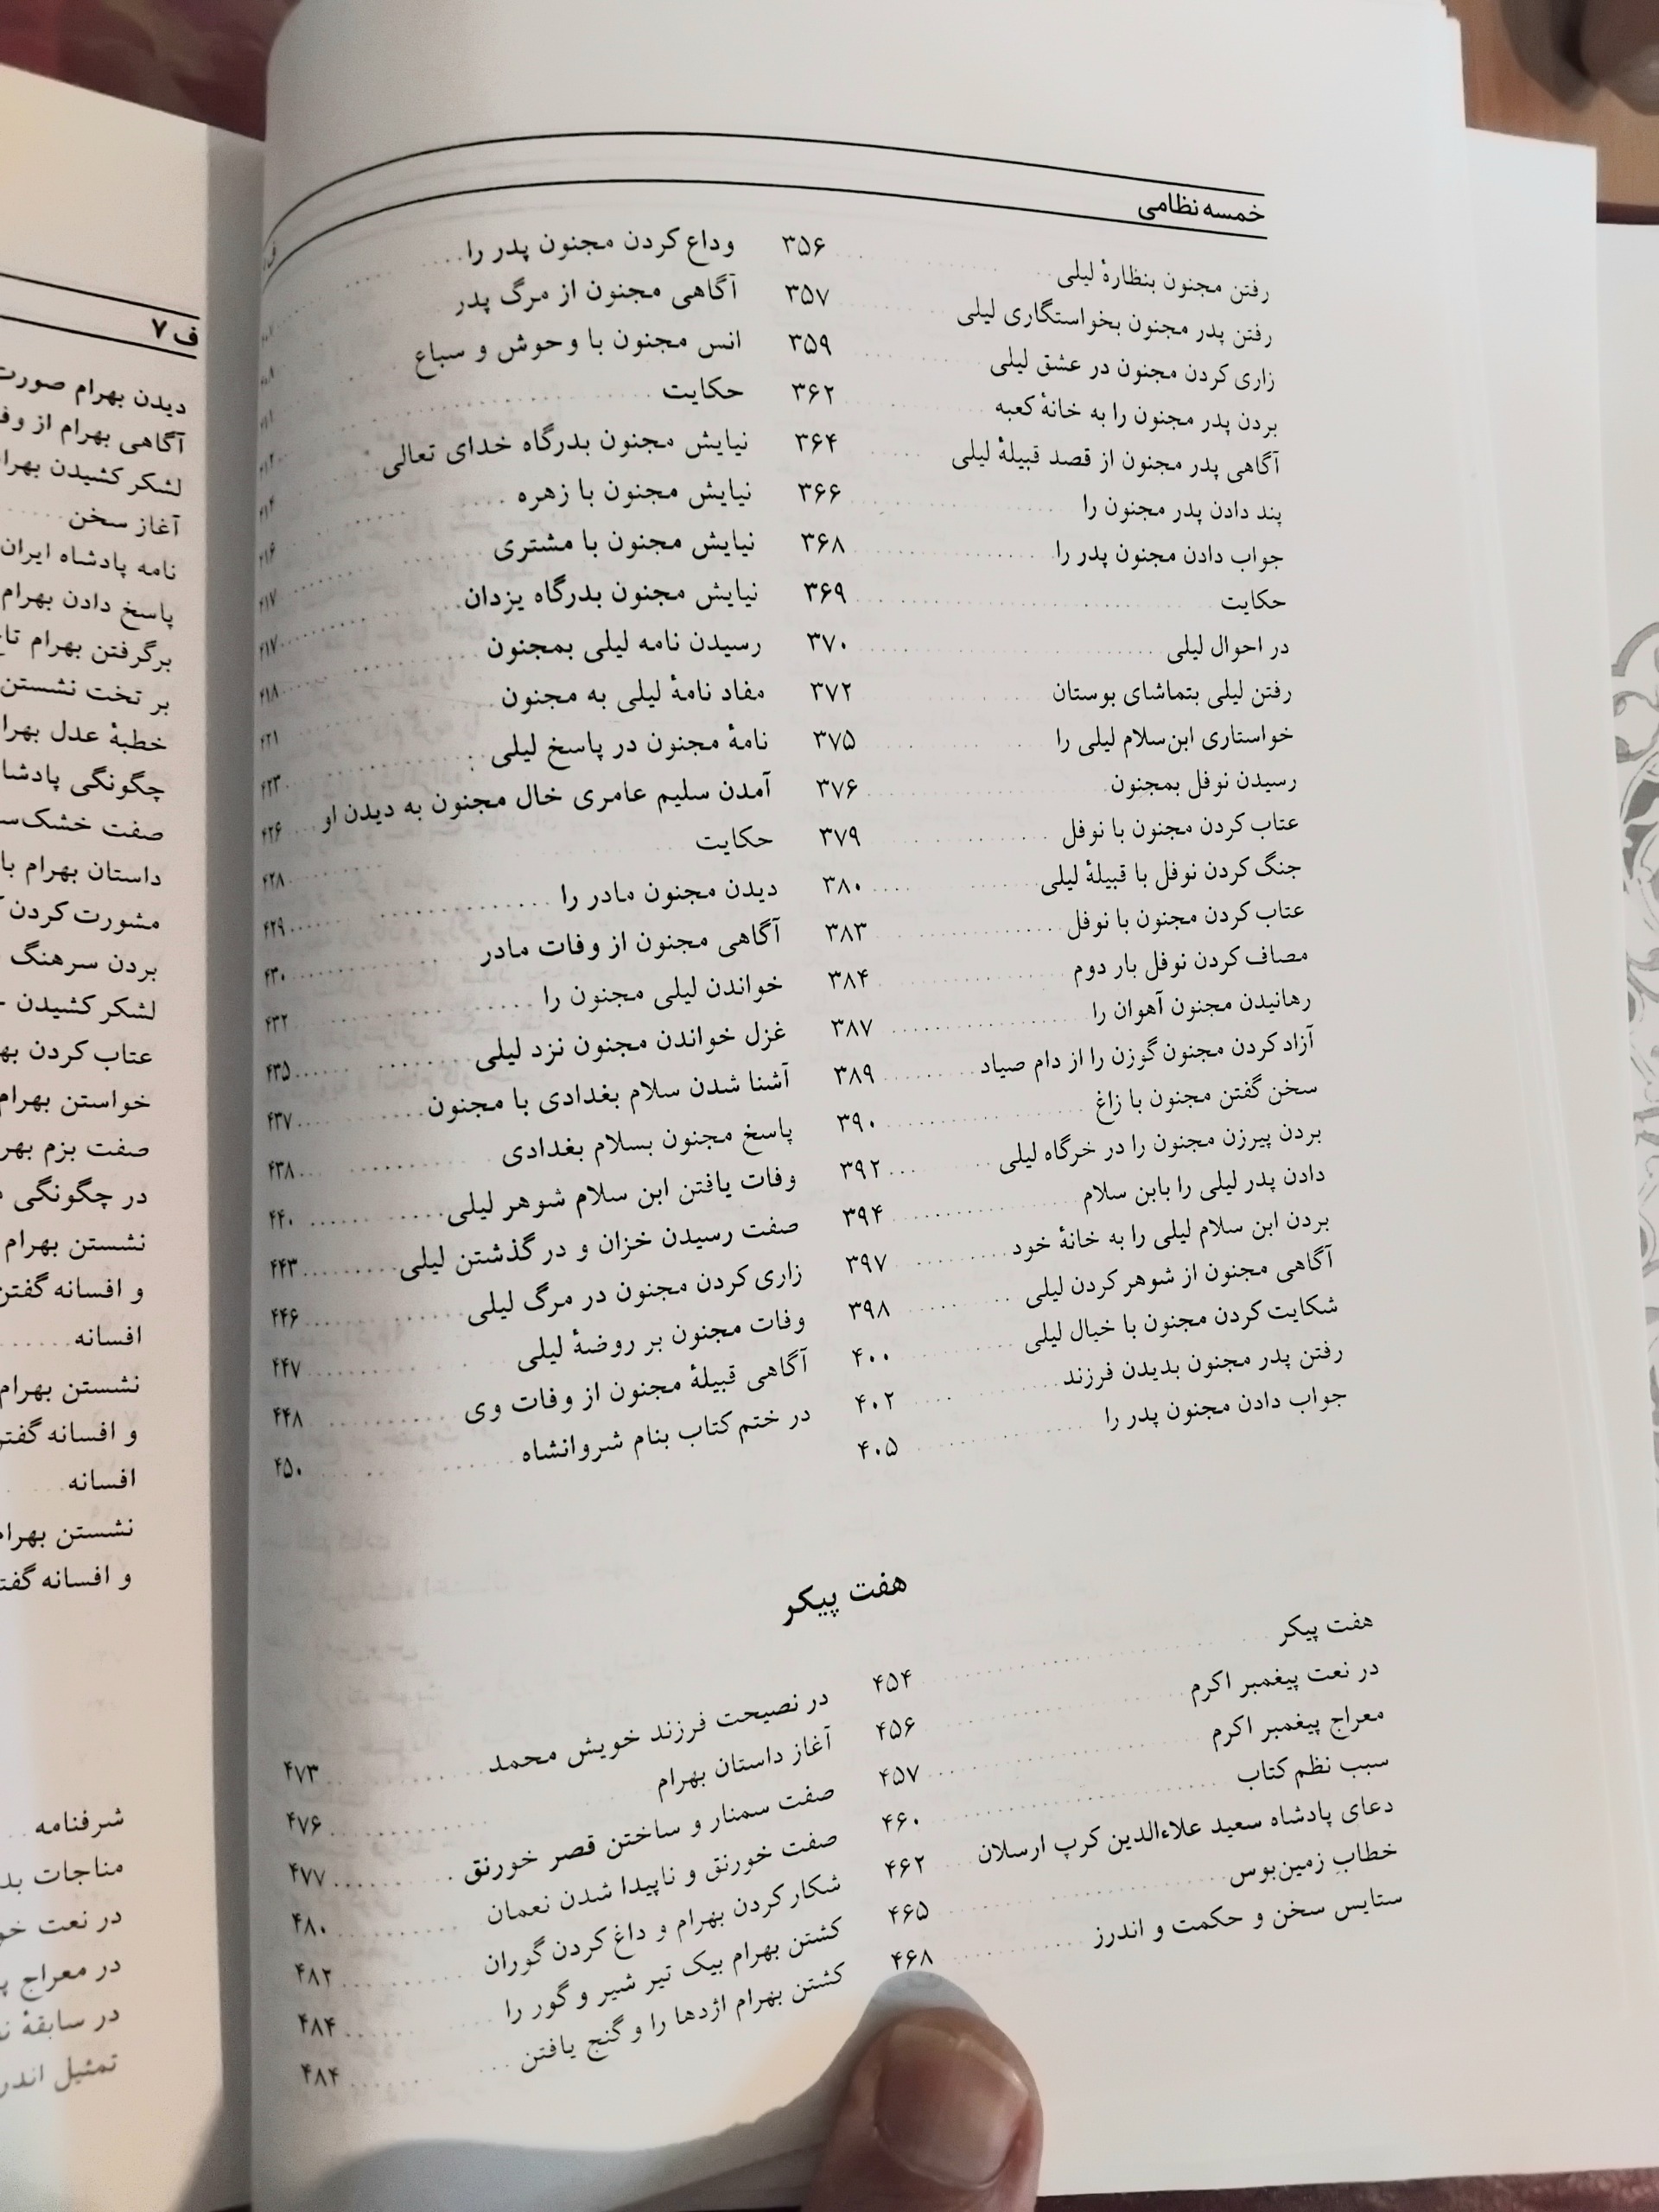 خمسه نظامی
رفتن مجنون بنظارهٔ لیلی ۳۵۶
رفتن پدر مجنون بخواستگاری لیلی ۳۵۷
زاری کردن مجنون در عشق لیلی ۳۵۹
بردن پدر مجنون را به خانهٔ کعبه ۳۶۲
آگاهی پدر مجنون از قصد قبیلهٔ لیلی ۳۶۴
پند دادن پدر مجنون را ۳۶۶
جواب دادن مجنون پدر را ۳۶۸
حکایت ۳۶۹
در احوال لیلی ۳۷۰
رفتن لیلی بتماشای بوستان ۳۷۲
خواستاری ابن‌سلام لیلی را ۳۷۵
رسیدن نوفل بمجنون ۳۷۶
عتاب کردن مجنون با نوفل ۳۷۹
جنگ کردن نوفل با قبیلهٔ لیلی ۳۸۰
عتاب کردن مجنون با نوفل ۳۸۳
مصاف کردن نوفل بار دوم ۳۸۴
رهانیدن مجنون آهوان را ۳۸۷
آزاد کردن مجنون گوزن را از دام صیاد ۳۸۹
سخن گفتن مجنون با زاغ ۳۹۰
بردن پیرزن مجنون را در خرگاه لیلی ۳۹۲
دادن پدر لیلی را بابن سلام ۳۹۴
بردن ابن سلام لیلی را به خانهٔ خود ۳۹۷
آگاهی مجنون از شوهر کردن لیلی ۳۹۸
شکایت کردن مجنون با خیال لیلی ۴۰۰
رفتن پدر مجنون بدیدن فرزند ۴۰۲
جواب دادن مجنون پدر را ۴۰۵
وداع کردن مجنون پدر را
آگاهی مجنون از مرگ پدر
انس مجنون با وحوش و سباع
حکایت
نیایش مجنون بدرگاه خدای تعالی
نیایش مجنون با زهره
نیایش مجنون با مشتری
نیایش مجنون بدرگاه یزدان
رسیدن نامه لیلی بمجنون
مفاد نامهٔ لیلی به مجنون
نامهٔ مجنون در پاسخ لیلی ۴۲۳
آمدن سلیم عامری خال مجنون به دیدن او ۴۲۶
حکایت ۴۲۸
دیدن مجنون مادر را ۴۲۹
آگاهی مجنون از وفات مادر ۴۳۰
خواندن لیلی مجنون را ۴۳۲
غزل خواندن مجنون نزد لیلی ۴۳۵
آشنا شدن سلام بغدادی با مجنون ۴۳۷
پاسخ مجنون بسلام بغدادی ۴۳۸
وفات یافتن ابن سلام شوهر لیلی ۴۴۰
صفت رسیدن خزان و در گذشتن لیلی ۴۴۳
زاری کردن مجنون در مرگ لیلی ۴۴۶
وفات مجنون بر روضهٔ لیلی ۴۴۷
آگاهی قبیلهٔ مجنون از وفات وی ۴۴۸
در ختم کتاب بنام شروانشاه ۴۵۰
هفت پیکر
هفت پیکر ۴۵۴
در نعت پیغمبر اکرم ۴۵۶
معراج پیغمبر اکرم ۴۵۷
سبب نظم کتاب ۴۶۰
دعای پادشاه سعید علاءالدین کرپ ارسلان ۴۶۲
خطاب زمین‌بوس ۴۶۵
ستایس سخن و حکمت و اندرز ۴۶۸
در نصیحت فرزند خویش محمد ۴۷۳
آغاز داستان بهرام ۴۷۶
صفت سمنار و ساختن قصر خورنق ۴۷۷
صفت خورنق و ناپیدا شدن نعمان ۴۸۰
شکار کردن بهرام و داغ کردن گوران ۴۸۲
کشتن بهرام بیک تیر شیر و گور را ۴۸۴
کشتن بهرام اژدها را و گنج یافتن ۴۸۴
ف ۷
دیدن بهرام صورت
آگاهی بهرام از
لشکر کشیدن
آغاز سخن
نامه پادشاه ایران
پاسخ دادن بهرام
برگرفتن بهرام
بر تخت نشستن
خطبهٔ عدل
چگونگی
صفت
داستان بهرام
مشورت کردن
بردن سرهنگ
لشکر کشیدن
عتاب کردن
خواستن بهرام
صفت بزم
در چگونگی
نشستن بهرام
و افسانه
افسانه
نشستن بهرام
و افسانه
افسانه
نشستن
و افسانه
شرفنامه
مناجات
در نعت
در معراج
در سابقهٔ
تمثیل